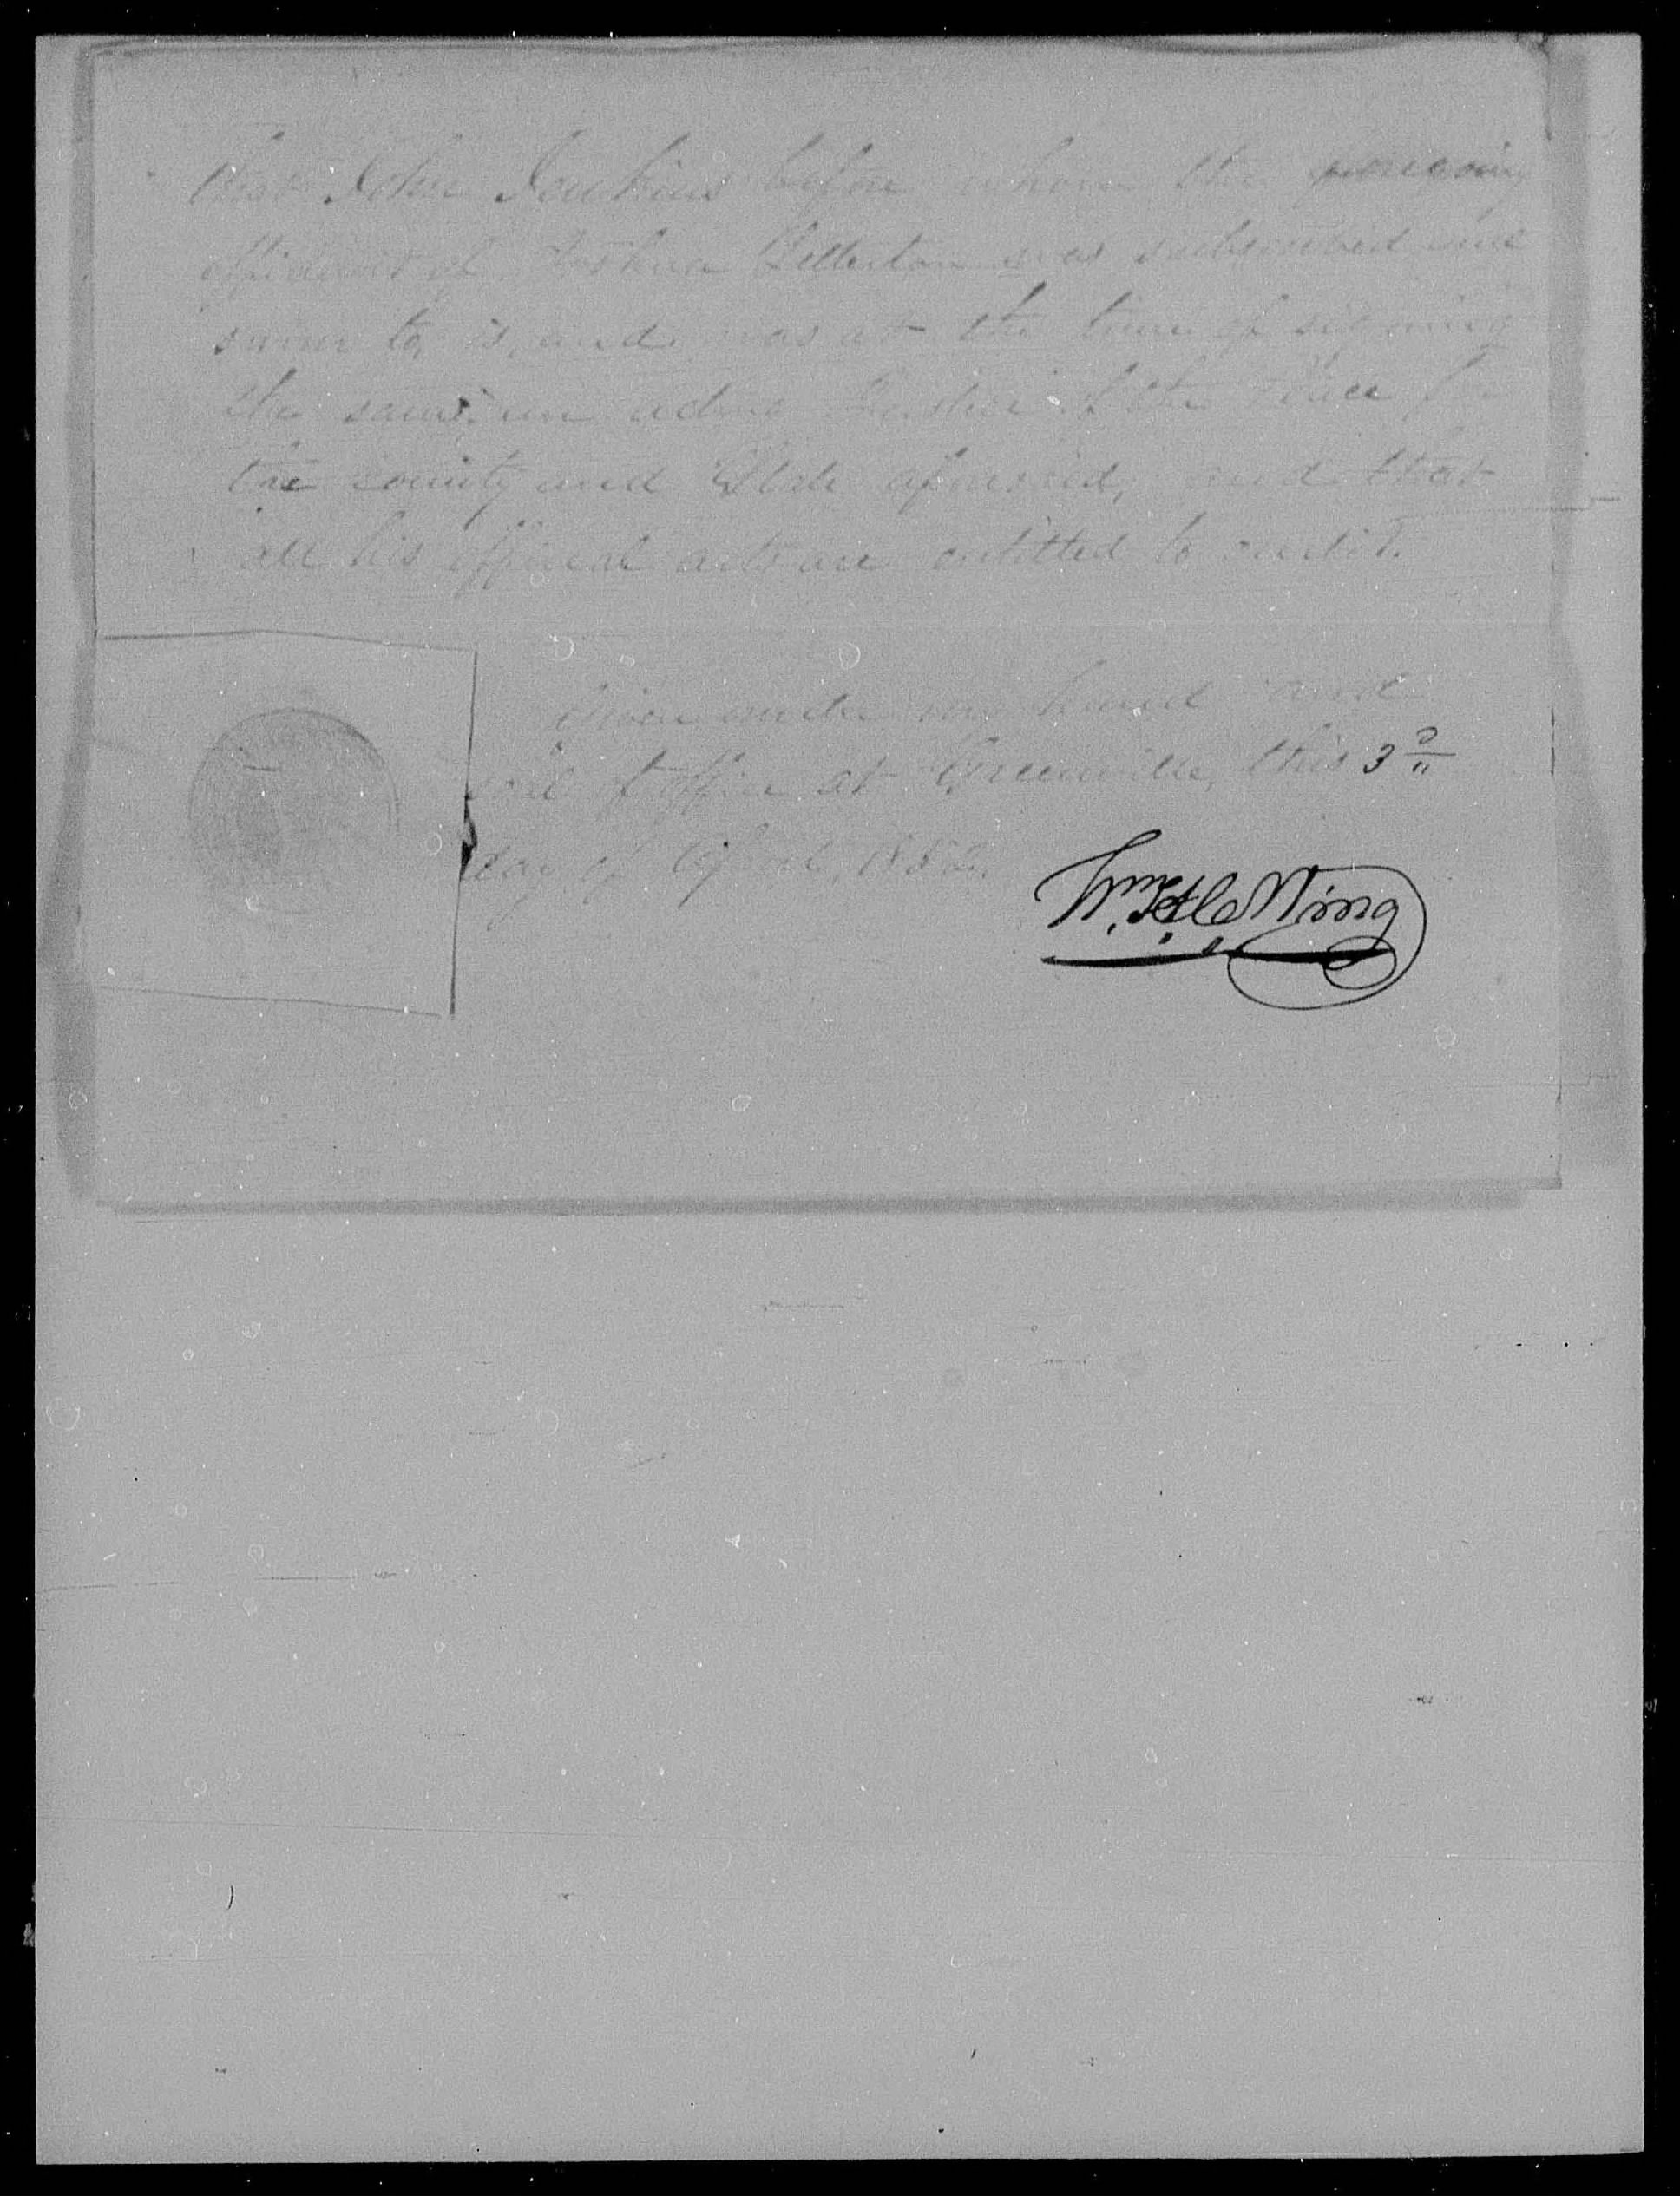 that John Jenkins before whom the foregoing
affidavit of Joshua was subscribed and
sworn to, is, and was at the time of signing
the same, an acting Justice of the Peace for
the county and State aforesaid, and that
all his official acts are entitled to credit.
Given under my hand and
seal of office at Greenville, this 3d
day of April, 1852.
Wm. H. C. Ming